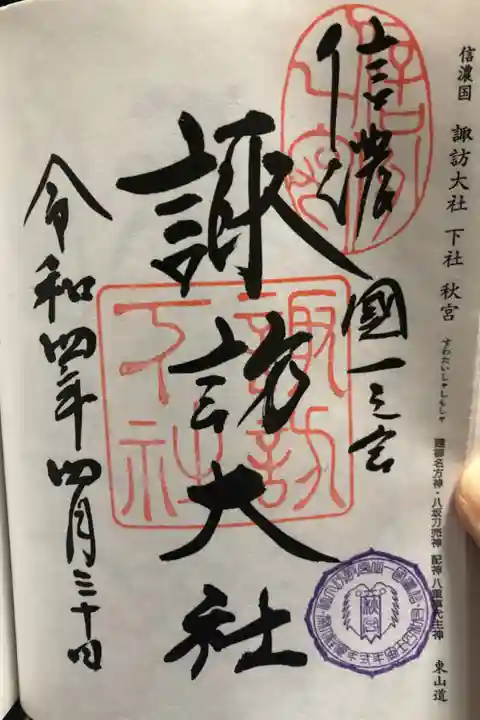 信濃国 諏訪大社 下社 秋宮 すわたいしゃしもしゃ 建御名方神・八坂刀売神 配神 八重事代主神 東山道
信濃國一之宮
諏訪大社
令和四年四月三十日
諏訪
下社
秋宮